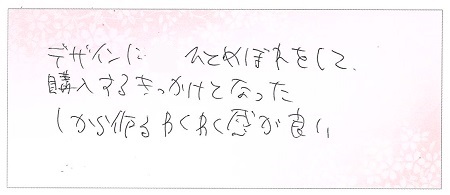 デザインに ひとめぼれをして、
購入するきっかけとなった
1から作るわくわく感が良い